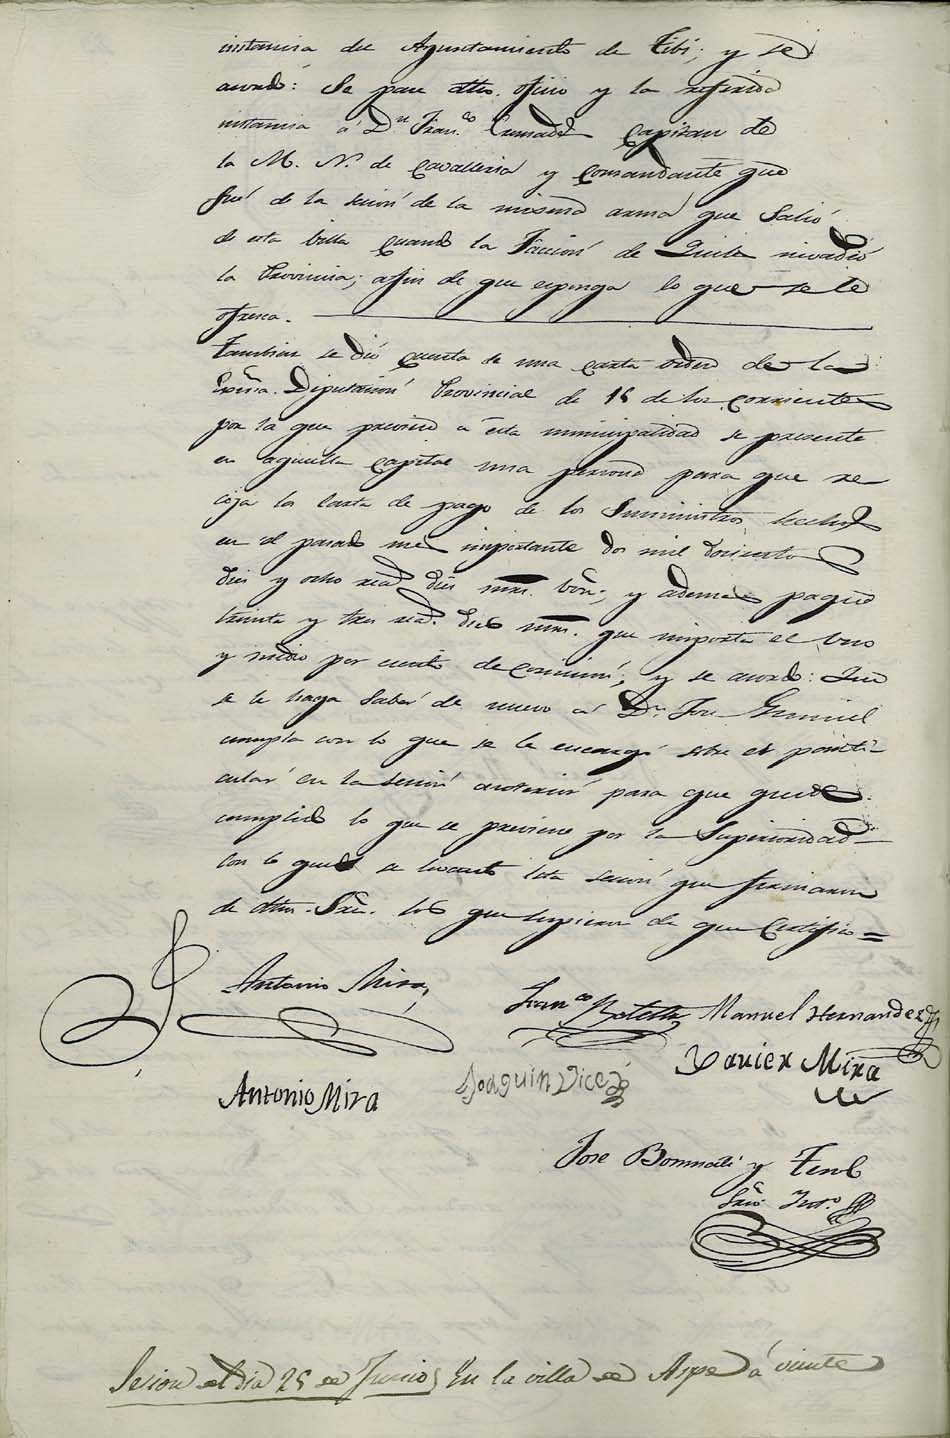 instancia del Ayuntamiento de Tibi; y se
acordó: Se pase dho. oficio y la referida
instancia á Dn. Franco. Cremades Capitan de
la M. N. de Cavalleria y Comandante que
fué de la sección de la misma arma que Salió
de esta villa cuando la Facción de Quilez invadió
la Provincia; afin de que esponga lo que se le
ofresca.
Tambien se dió cuenta de una carta orden de la
Exma. Diputación Provincial de 15 de los corrientes
por la que previene a esta municipalidad se presente
en aquella capital una persona para que re
coja la Carta de pago de los Suministros hechos
en el pasado mes importante dos mil doscientos
dies y ocho rea.s dies mrs. von.; y ademas pague
treinta y tres rea.s dies mrs. que importa el uno
y medio por ciento de comision; y se acordó: Que
se le haga Saber de nuevo a Dn. Jose
cumpla con lo que se le encargó sobre el parti-
cular en la sesión anterior para que quede
cumplido lo que se previene por la Superioridad
Con lo que se levantó esta sesión que firmaron
de dhos. Sres. los que supieron de que Certifico=
Antonio Mira
Franco Botella Manuel Hernandez
Xavier Mira
Antonio Mira Joaquin Vicedo
Jose Bonmati y Terol
Srio. Into.
Sesion del dia 25 de Junio En la villa de Aspe á veinte